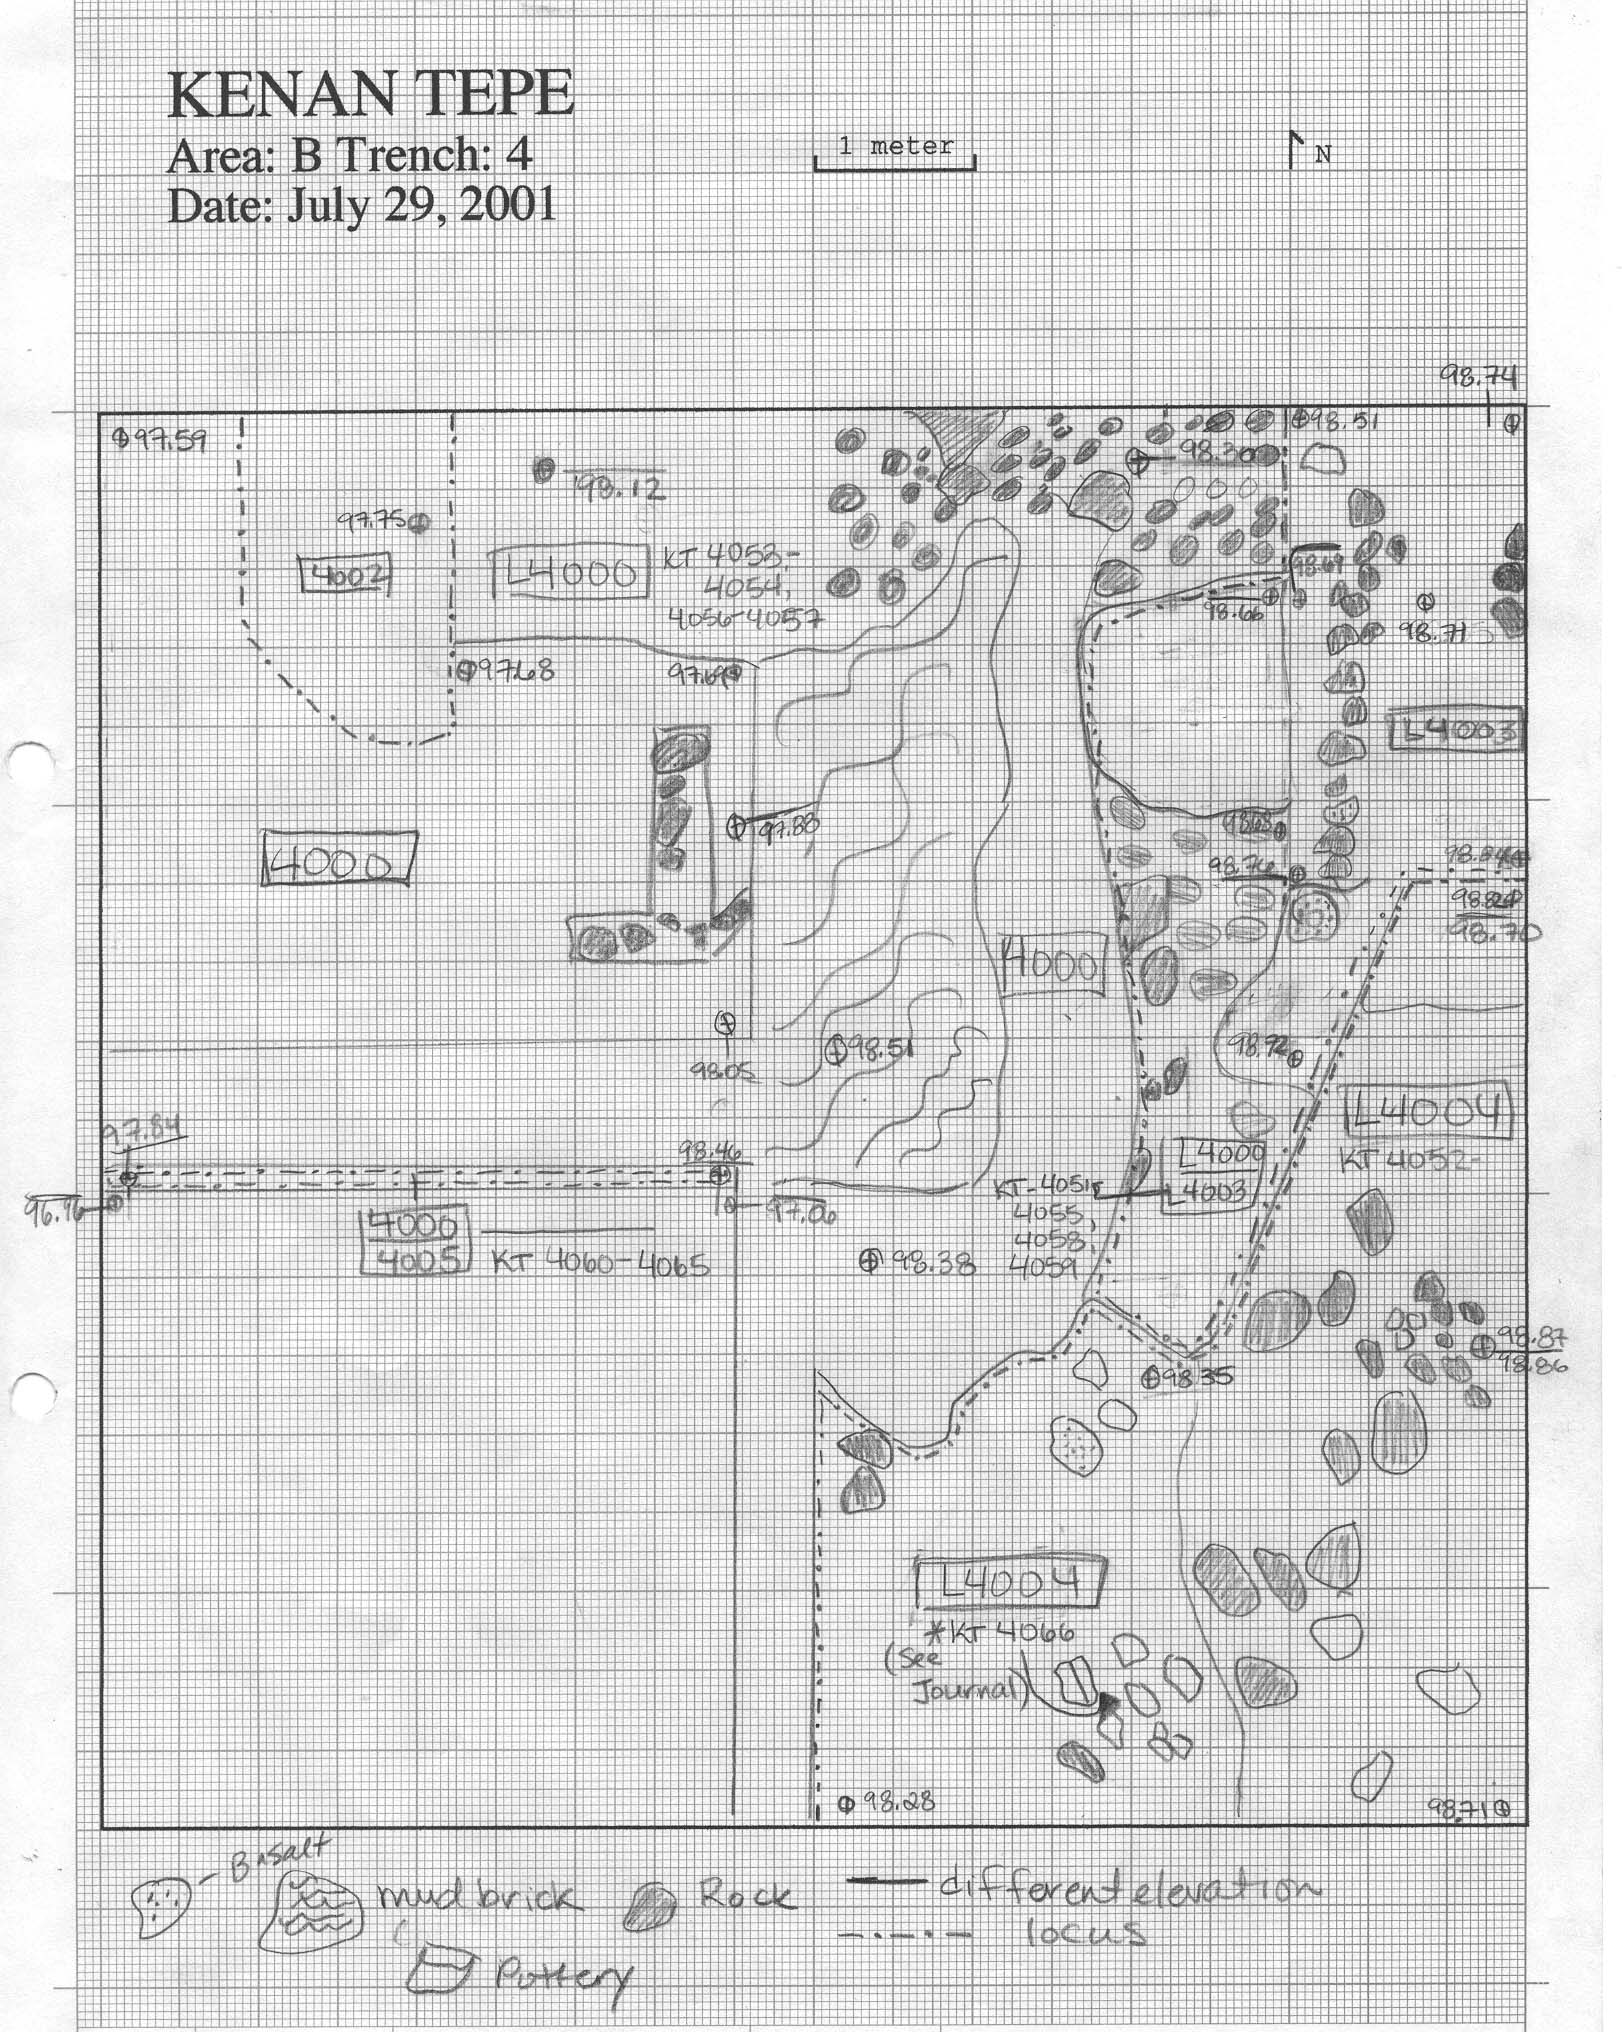 KENAN TEPE
Area: B Trench: 4
Date: July 29, 2001
1 meter
N
98.74
97.59
98.51
98.30
98.12
97.75
4002
L4000
KT 4053-
4054,
4056-4057
98.69
98.66
98.71
97.68
97.69
L4003
97.88
98.68
98.76
4000
98.84
98.82
98.70
4000
98.51
98.92
98.05
L4004
KT 4052-
97.84
98.46
L4000
L4003
KT-4051,
4055,
4058,
4059
96.96
97.06
4000
4005
KT 4060-4065
98.38
98.87
98.86
98.35
L4004
*KT 4066
(See
Journal)
98.28
98.71
Basalt
mud brick
Rock
different elevation
locus
Pottery